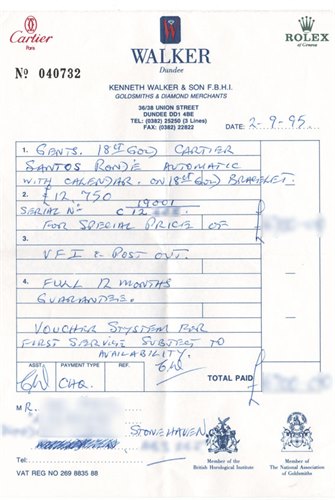 Cartier
Paris
WALKER
Dundee
ROLEX
of Geneva
Nº 040732
KENNETH WALKER & SON F.B.H.I.
GOLDSMITHS & DIAMOND MERCHANTS
36/38 UNION STREET
DUNDEE DD1 4BE
TEL: (0382) 25250 (3 Lines)
FAX: (0382) 22822
DATE: 2-9-95
1. GENTS. 18ct GOLD CARTIER
SANTOS RONDÉ AUTOMATIC
WITH CALENDAR. ON 18ct GOLD BRACELET.
2. £12 750
19001
SERIAL Nº C 12
FOR SPECIAL PRICE OF £
3.
V.F.I & POST OUT.
4. FULL 12 MONTHS
GUARANTEE.
VOUCHER SYSTEM FOR
FIRST SERVICE SUBJECT TO
AVAILABILITY.
ASST. PAYMENT TYPE
CHQ.
TOTAL PAID £
MR.
STONEHAVEN
Tel:
Member of the
British Horological Institute
Member of
The National Association
of Goldsmiths
VAT REG NO 269 8835 88